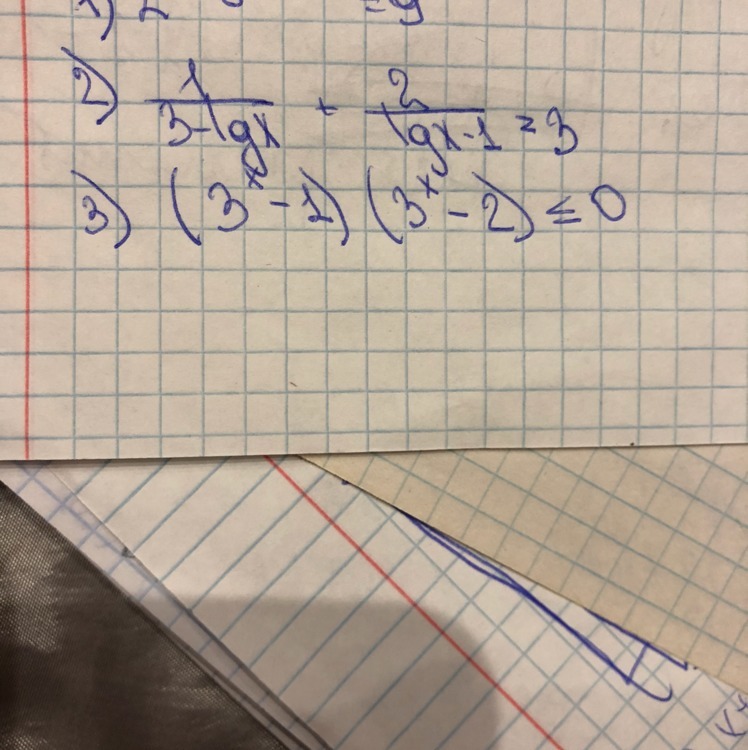 2) 1/(3-lgx) + 2/(lgx-1) = 3
3) (3^x - 1) (3^x - 2) ≤ 0